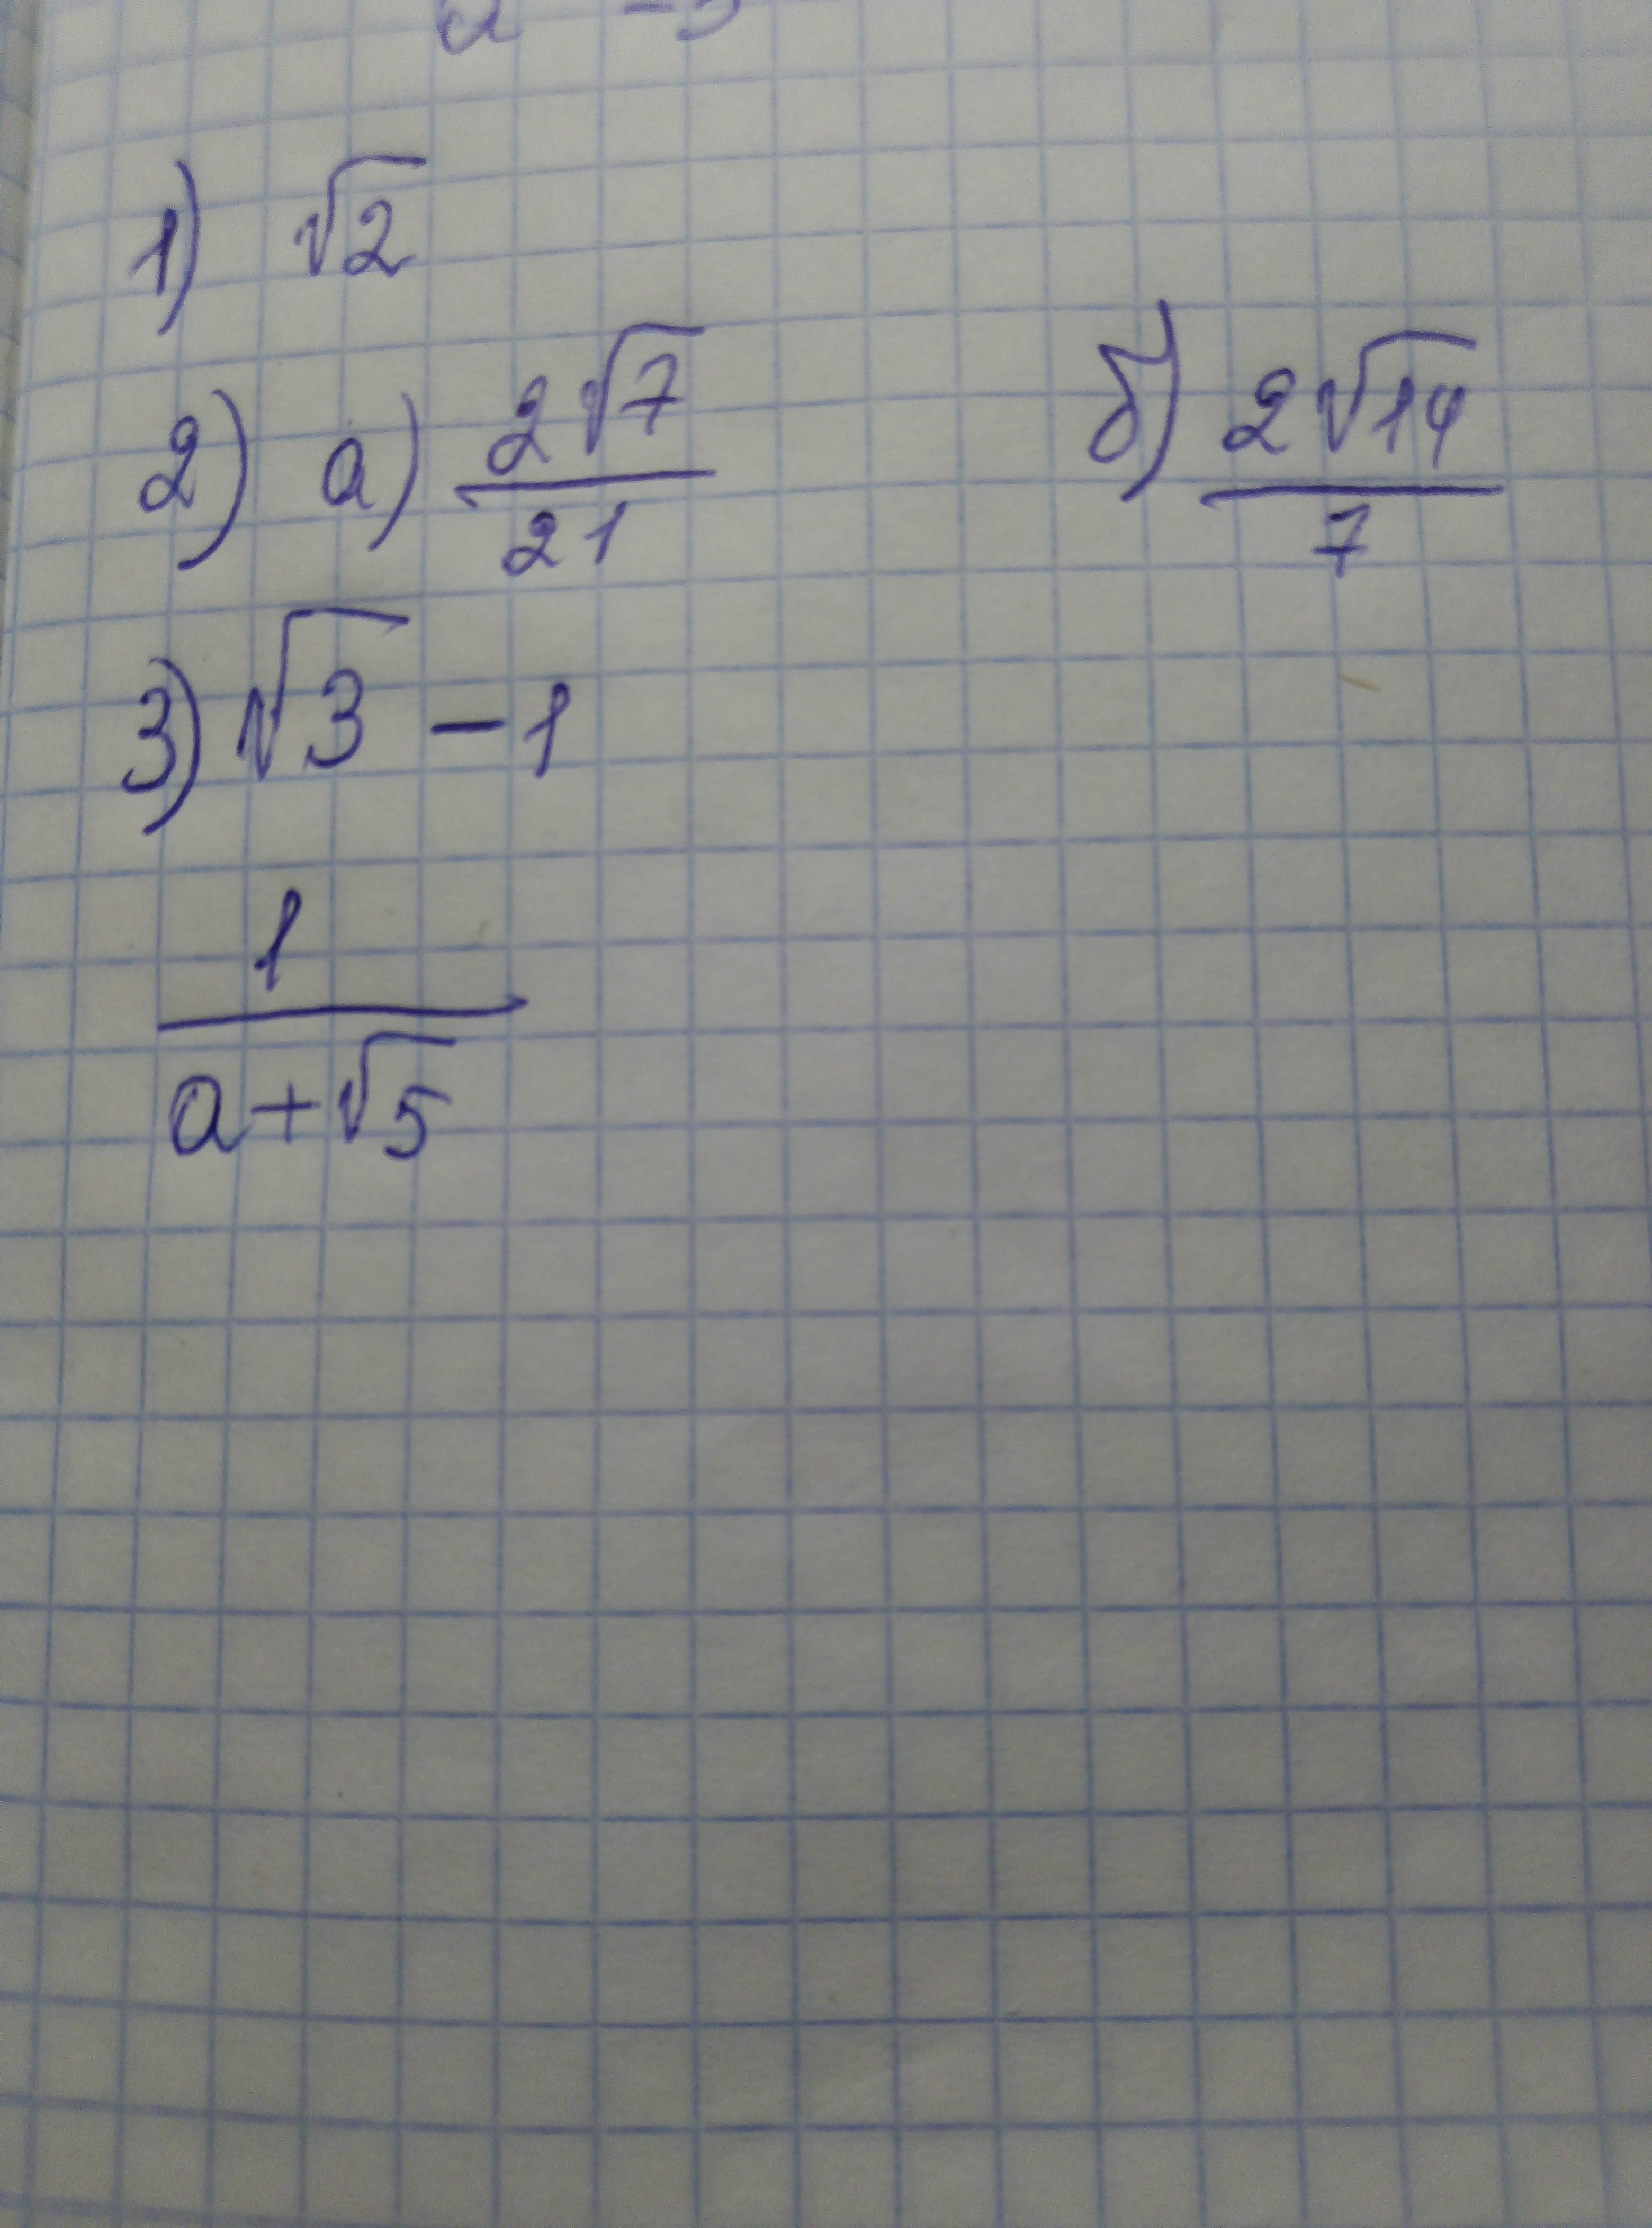 1) √2
2) а) 2√7/21 б) 2√14/7
3) √3 - 1
1/(a+√5)